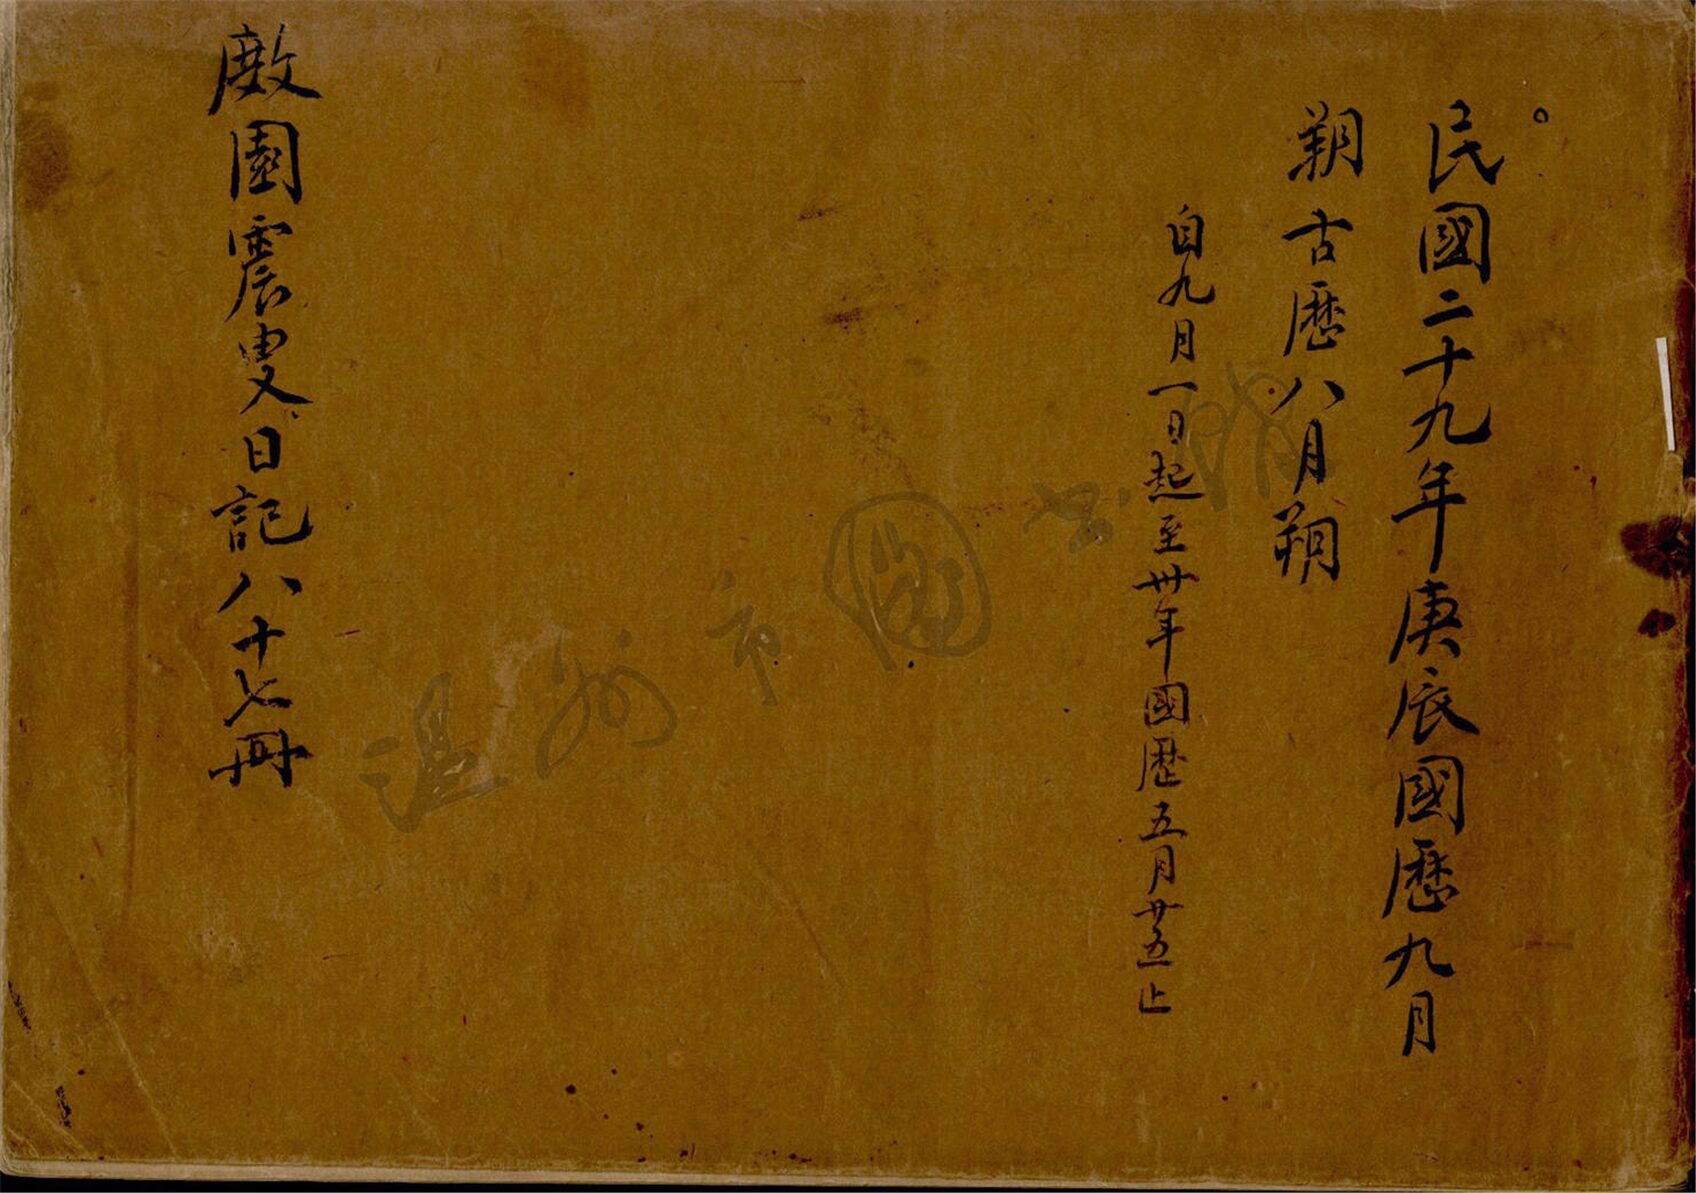 民國二十九年庚辰國曆九月
朔古曆八月朔
自九月一日起至卅年國歷五月廿五止
厰園震叟日記八十七冊
温州市圖书館